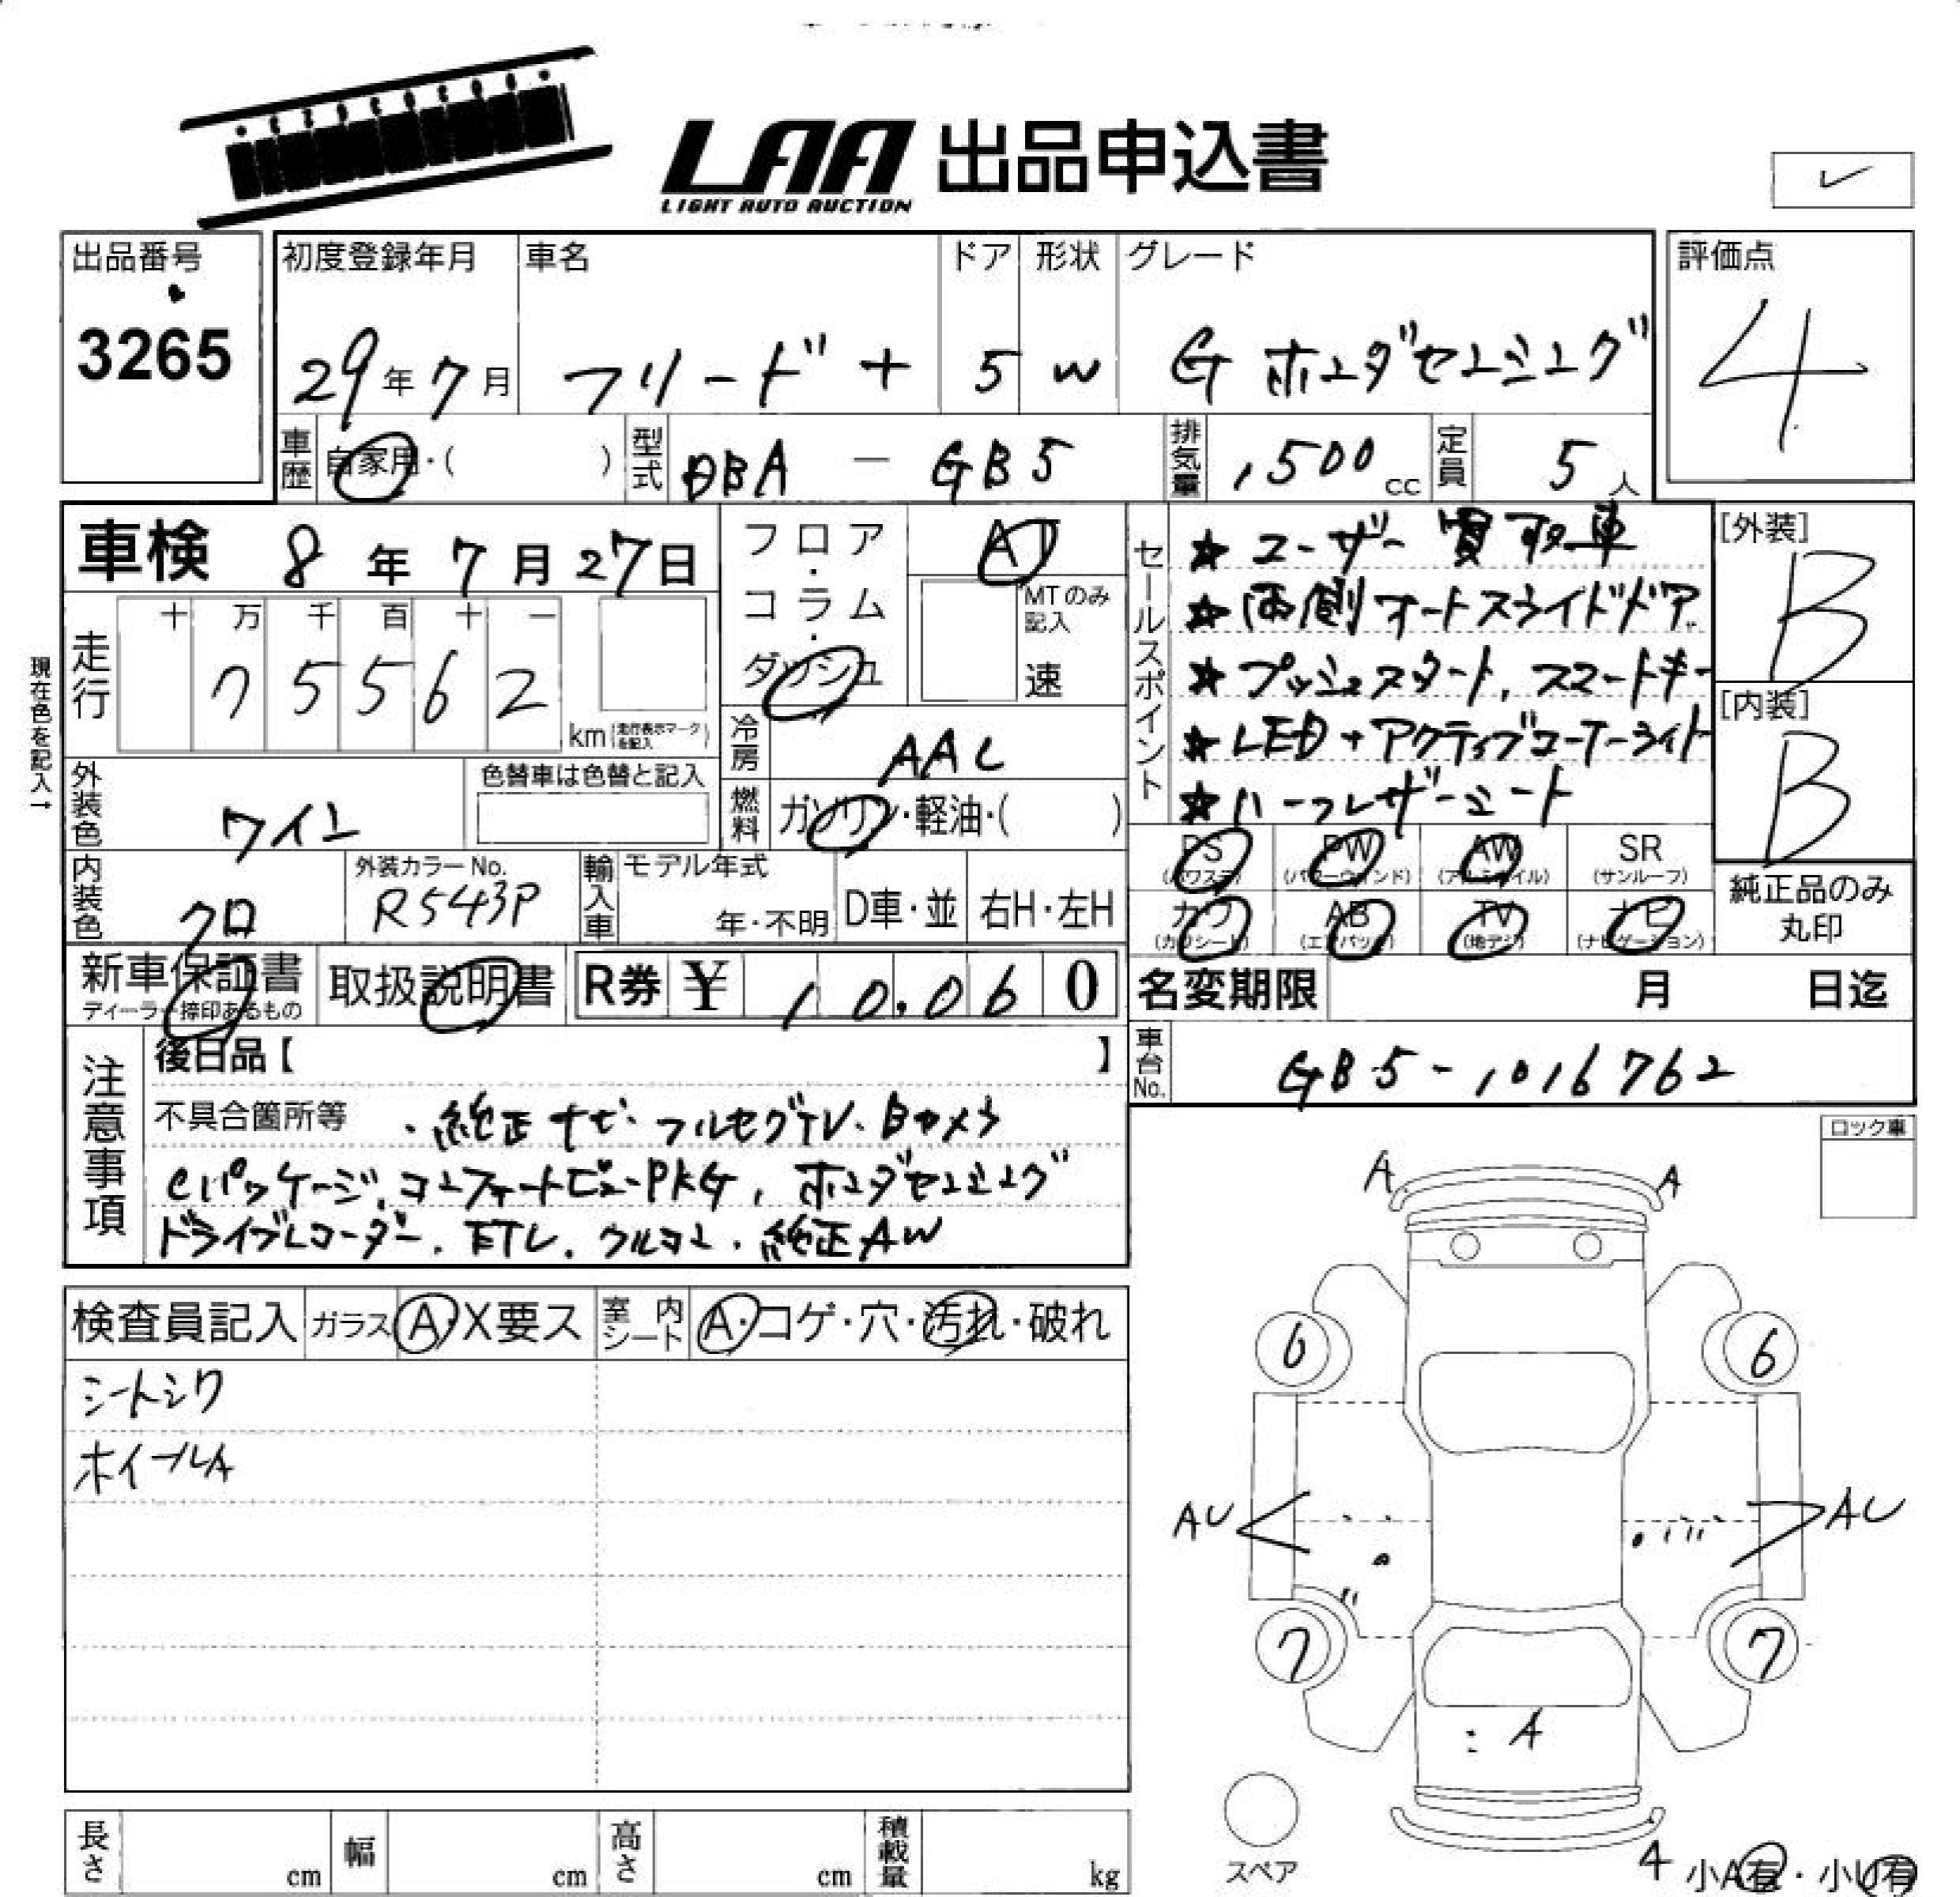 LAA 出品申込書
LIGHT AUTO AUCTION
✓
出品番号
3265
初度登録年月
29年7月
車名
フリード+
ドア
5
形状
W
グレード
G ホンダセンシング
評価点
4
車歴 自家用・( )
型式 DBA - GB5
排気量 1500 cc
定員 5人
車検 8年7月27日
現在色を記入→
走行 十万千百十一
75562 km(走行表示マークを記入)
フロア・コラム・ダッシュ
AT
MTのみ記入
速
冷房 AAC
燃料 ガソリン・軽油・( )
外装色 ワイン
色替車は色替と記入
内装色 クロ
外装カラーNo.
R543P
輸入車 モデル年式
年・不明 D車・並 右H・左H
セールスポイント
★ユーザー買取車
★両側オートスライドドア
★プッシュスタート、スマートキー
★LED+アクティブコーナーライト
★ハーフレザーシート
[外装]
B
[内装]
B
PS (パワステ) PW (パワーウィンド) AW (アルミホイル) SR (サンルーフ)
カワ (カワシート) AB (エアバック) TV (地デジ) ナビ (ナビゲーション)
純正品のみ丸印
新車保証書
ディーラー捺印あるもの
取扱説明書
R券 ¥ 10,060
名変期限 月 日迄
車台No. GB5-1016762
注意事項
後日品【 】
不具合箇所等 ・純正ナビ・フルセグTV、Bカメラ
Cパッケージ、コンフォートビューPKG、ホンダセンシング
ドライブレコーダー、ETC、クルコン、純正AW
ロック車
検査員記入 ガラス A・X要ス 室内シート A・コゲ・穴・汚れ・破れ
シートシワ
ホイールA
A A
6 6
AU AU
7 7
A
スペア
4 小A有・小U有
長さ cm 幅 cm 高さ cm 積載量 kg